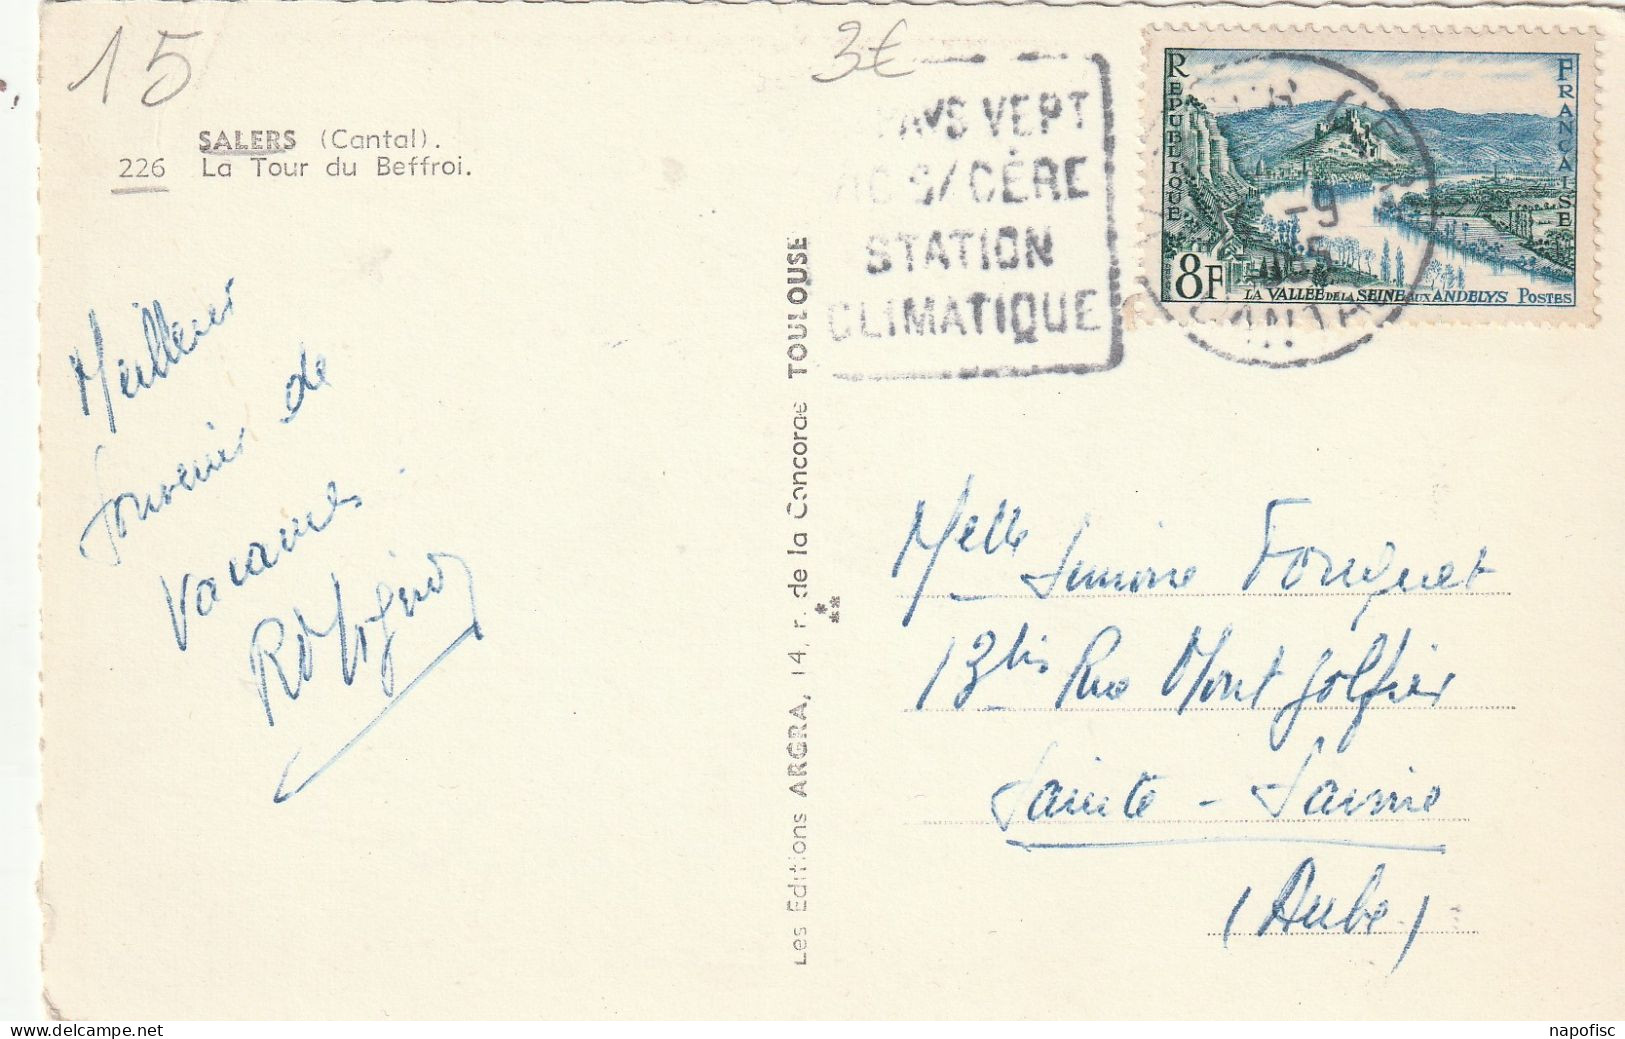 15
3€
SALERS (Cantal).
226 La Tour du Beffroi.
PAYS VERT
VIC S/CÈRE
STATION
CLIMATIQUE
RÉPUBLIQUE
FRANÇAISE
8F
LA VALLÉE DE LA SEINE AUX ANDELYS POSTES
-9
CANTAL
Meilleurs
souvenirs de
vacances.
Les Editions ARGRA, 14, r. de la Concorde TOULOUSE
Melle Simone Fouquet
13bis Rue Montgolfier
Sainte-Savine
(Aube)
delcampe.net
napofisc